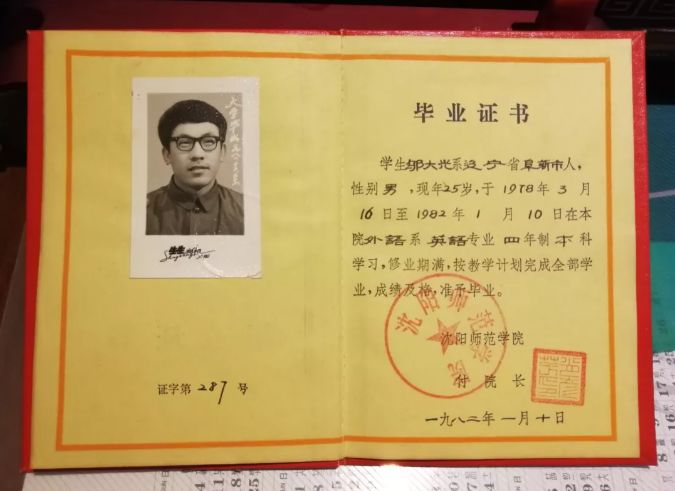 毕业证书
学生邬大光系辽宁省阜新市人，
性别男，现年25岁，于1978年3月
16日至1982年1月10日在本
院外語系英語专业四年制本科
学习，修业期满，按教学计划完成全部学
业，成绩及格，准予毕业。
沈阳师范学院
沈阳师范学院
付院长
一九八二年一月十日
证字第287号